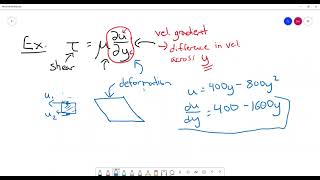 Ex. τ = μ ∂u/∂y
vel. gradient
→ difference in vel.
across y
shear
deformation
u₁
u₂
u = 400y - 800y²
du/dy = 400 - 1600y